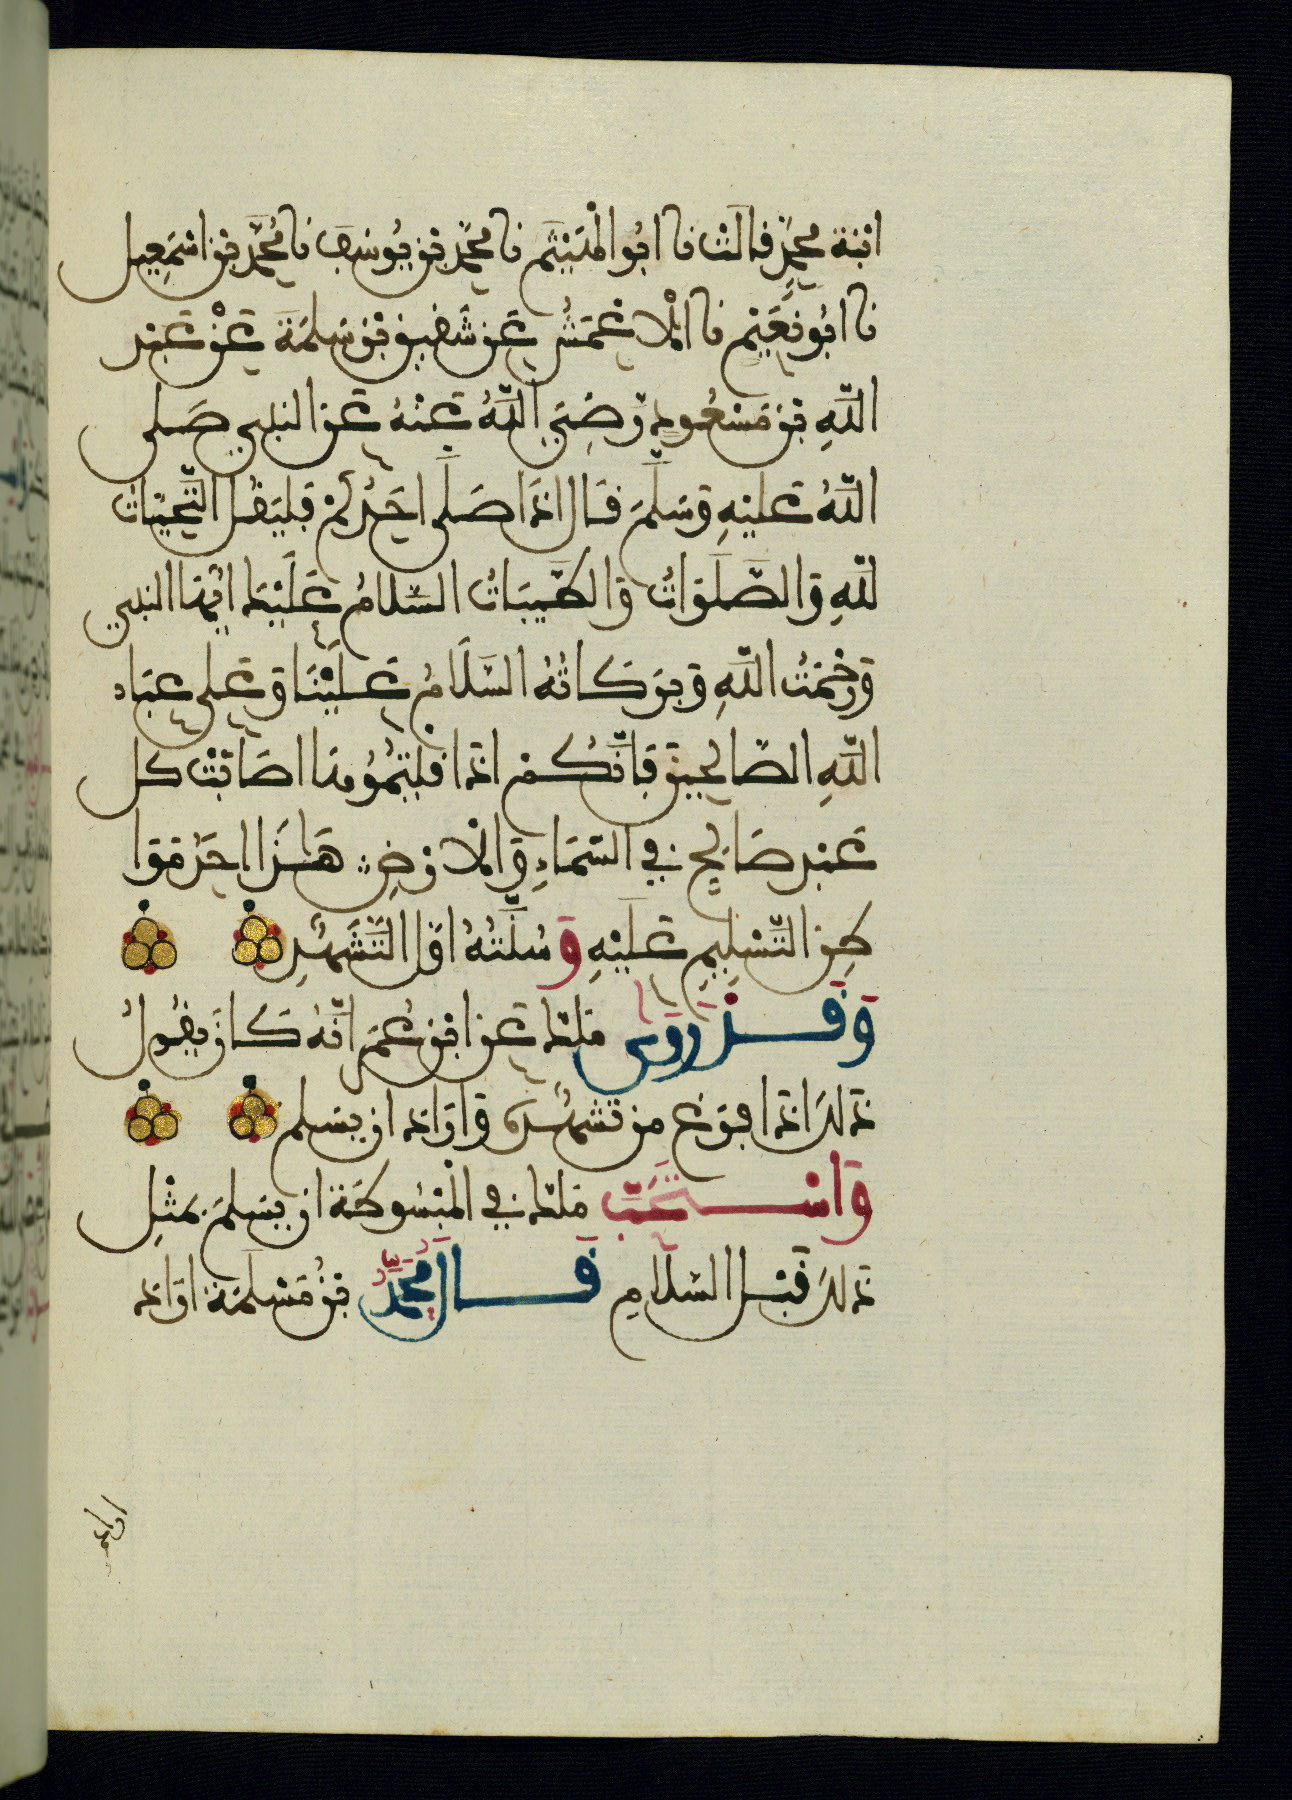 ابنة محمدٍ قالتْ نا ابُو الْهَيْثَمِ نا محمّد بْن يُوسُف نا مُحَمّد بْن اسْمَعِيل
نا ابُو نُعَيْمٍ نا الْاَعْمَشُ عَن شَقيق بْن سَلمَةَ عَنْ عَبْد
اللّهِ بْن مَسْعُودٍ رَضِيَ اللّهُ عَنْهُ عَن النبي صَلى
اللّهُ عَليْهِ وَسَلَّمَ قَال اذَا صَلّى احَدُكُمْ فَليَقُل التَّحِيّاتُ
للّهِ وَالصّلَوَاتُ وَالطّيّبَاتُ السّلامُ عَلَيْكَ ايّهَا النبي
وَرَحْمَتُ اللّهِ وَبَرَكَاتُهُ السّلَامُ عَلَيْنَا وَعَلى عِبَاد
اللّهِ الصّالحِينَ فَانّكُمْ اذَا قلتمُوهَا اصَابَتْ كل
عَبْدٍ صَالحٍ في السّمَاءِ وَالْارْضِ هَاذَا احَدُ مَوَا
طِن التّسْلِيمِ عَلَيْهِ وَسُنّتُهُ اوّل التّشَهّدِ
وَقَدْ رَوَى مَلك عَن ابْن عُمَرَ انّهُ كَانَ يقُولُ
ذَلكَ اذَا فَرَغ من تشهّدهِ وَارَادَ ان يسَلم
وَاسْتَحَبّ مَلك في الْمَبْسُوطَة ان يسَلمَ بمثْلِ
ذَلكَ قَبْل السّلَامِ قَالَ مُحَمّدُ بْنُ مَسْلَمَة ارَادَ
اراد